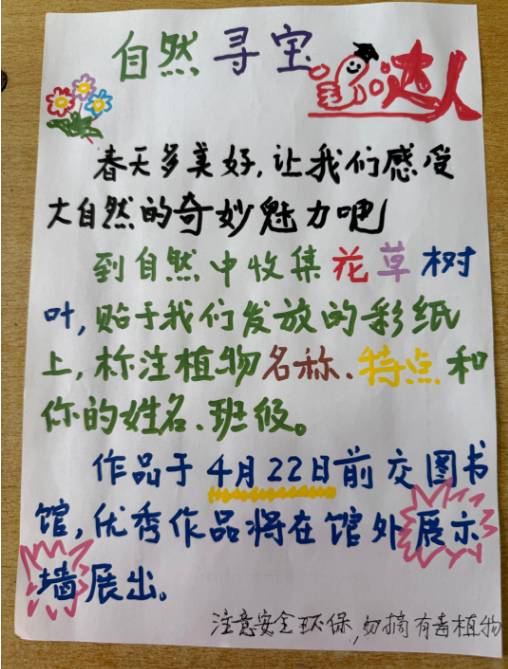 自然寻宝达人
春天多美好,让我们感受
大自然的奇妙魅力吧
到自然中收集花草树
叶,贴于我们发放的彩纸
上,标注植物名称、特点和
你的姓名、班级。
作品于4月22日前交图书
馆,优秀作品将在馆外展示
墙展出。
注意安全环保,勿摘有毒植物